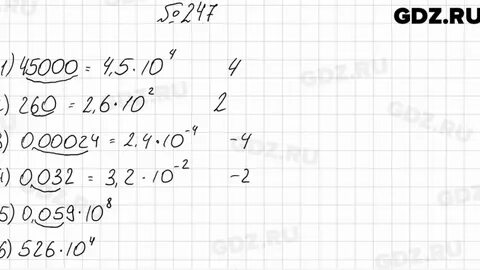 №247
GDZ.RU
1) 45000 = 4,5·10⁴ 4
2) 260 = 2,6·10² 2
3) 0,00024 = 2,4·10⁻⁴ -4
4) 0,032 = 3,2·10⁻² -2
5) 0,059·10⁸
6) 526·10⁴